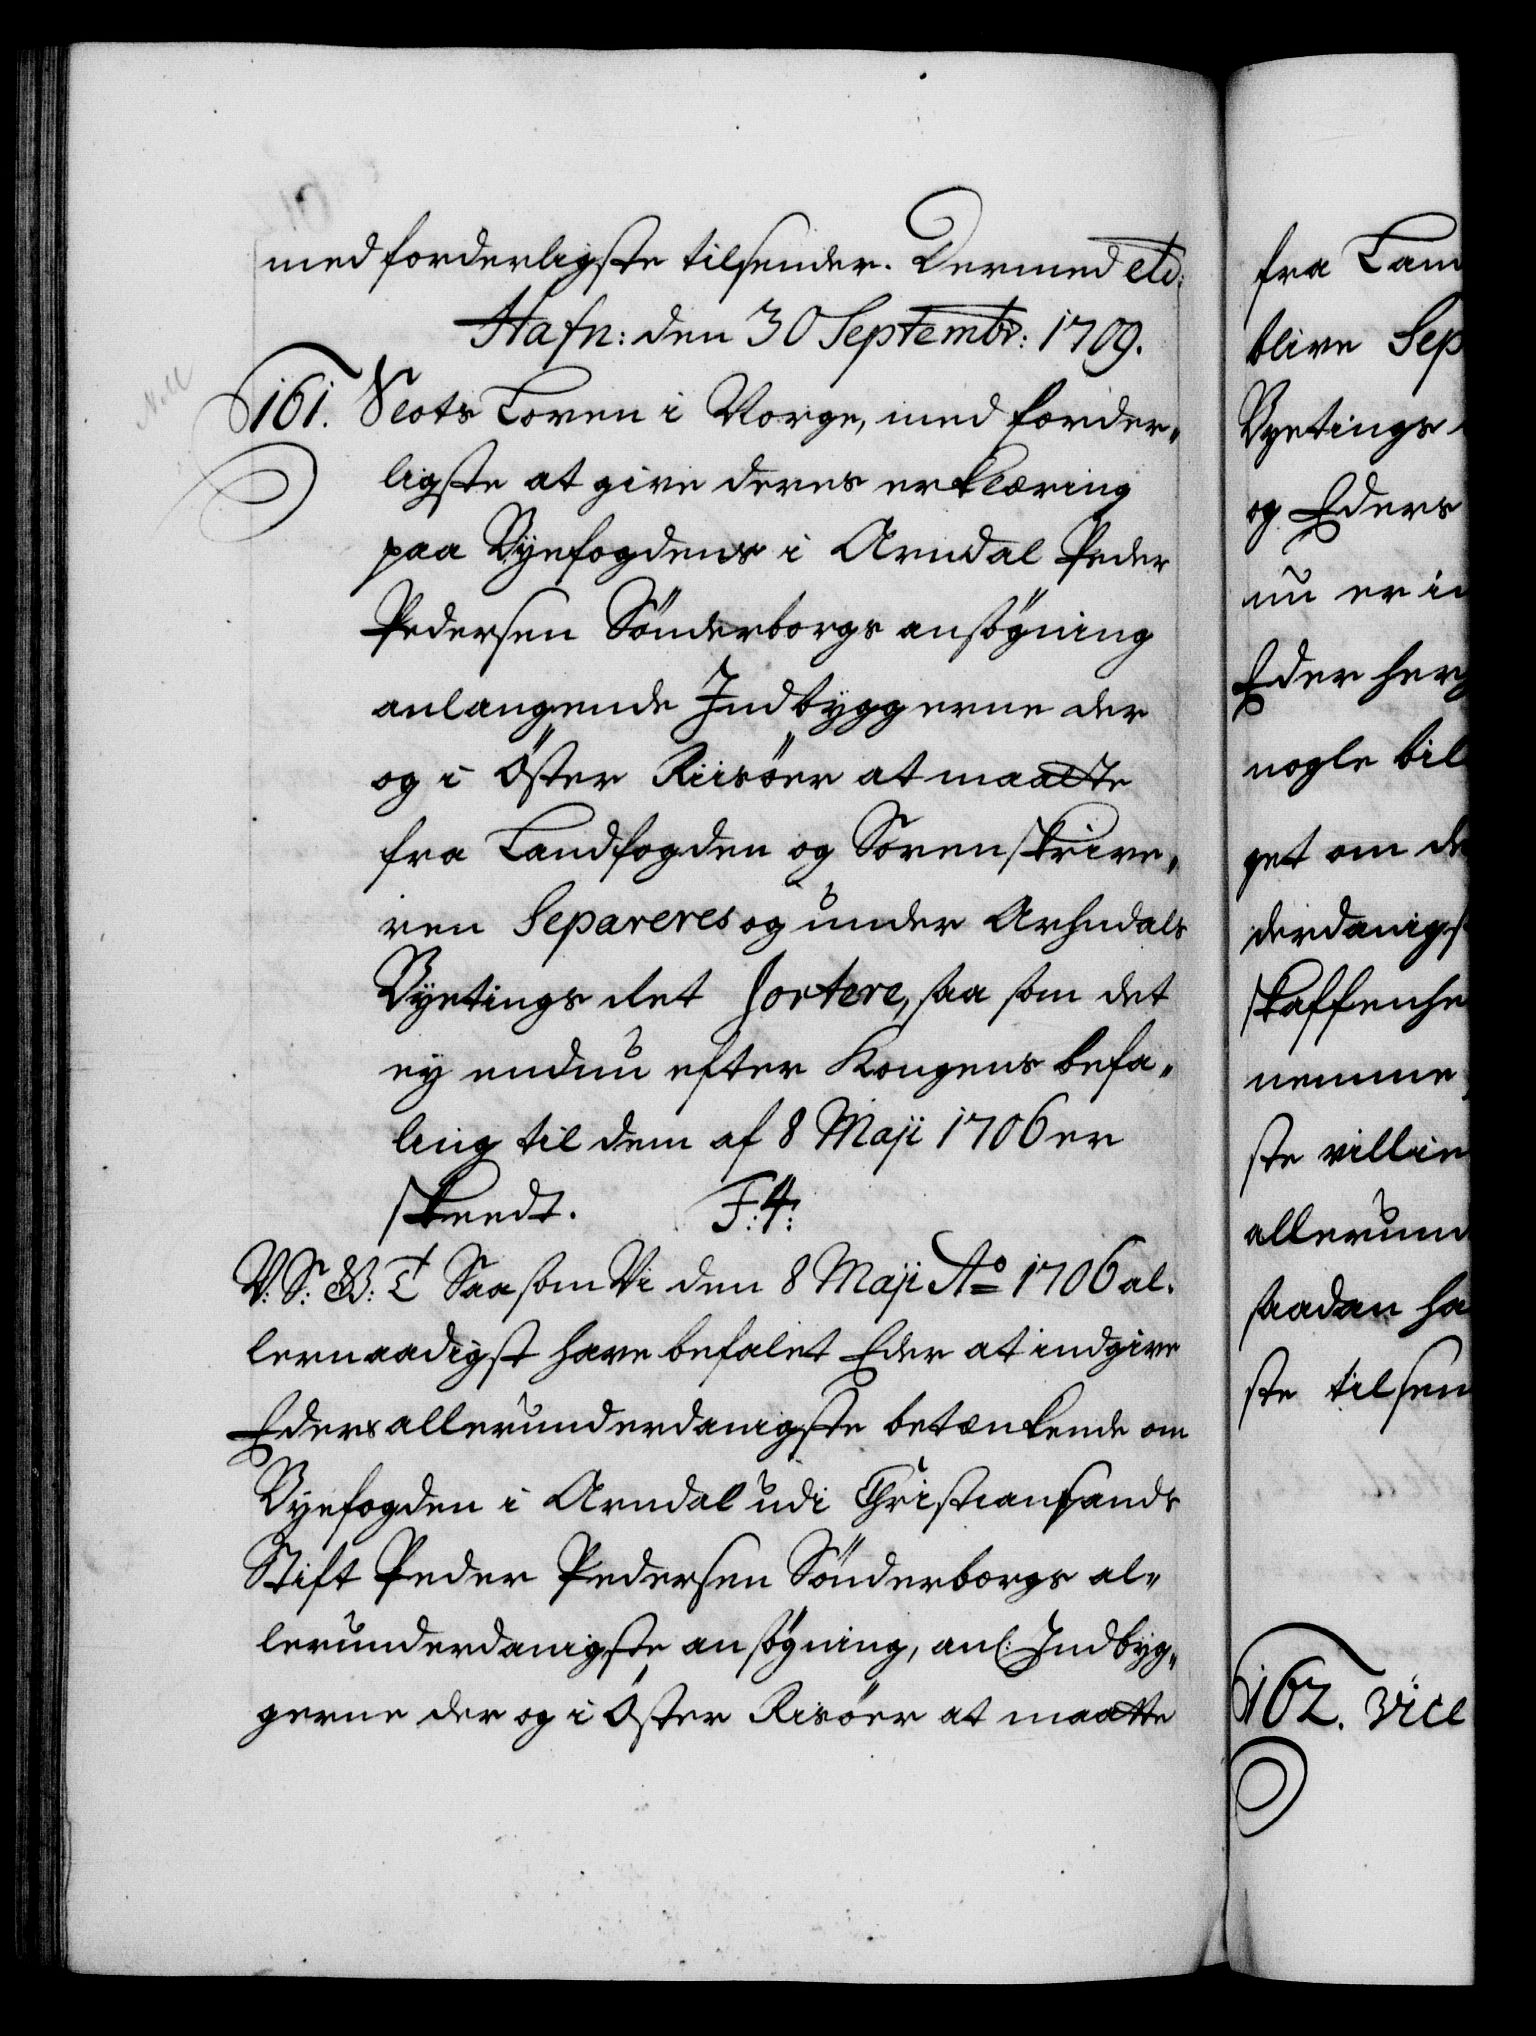 med forderligste tilsender. Dermed etc:
Hafn: den 30 Septembr: 1709.
161. Slots Loven i Norge, med forder-
ligste at give deres erklæring
paa Byefogdens i Arndal Peder
Pedersen Sönderborgs ansögning
anlangende Indbyggerne der
og i Öster Riisöer at maatte
fra Landfogden og Sorenskrive-
ren Separeres og under Arhndals
Byetings ret sortere, saa som det
ey endnu efter Kongens befa-
ling til dem af 8 Maji 1706 er
skeedt. F: 4:
V: S: G: T Saasom Vi den 8 Maji Ao 1706 al-
lernaadigst have befalet Eder at indgive
Eders allerunderdanigste betænkende om
Byefogden i Arndal udi Christiansands
Stift Peder Pedersen Sönderborgs al-
lerunderdanigste ansögning, anl: Indbyg-
gerne der og i Öster Risöer at maatte
fra Lan
blive Sep
Byetings
og Eders
nu er in
Eder her
nogle bil
get om de
derdanigs
skaffenhe
nemme
ste villie
allerund
saadan ha
ste tilsen
162. Vice